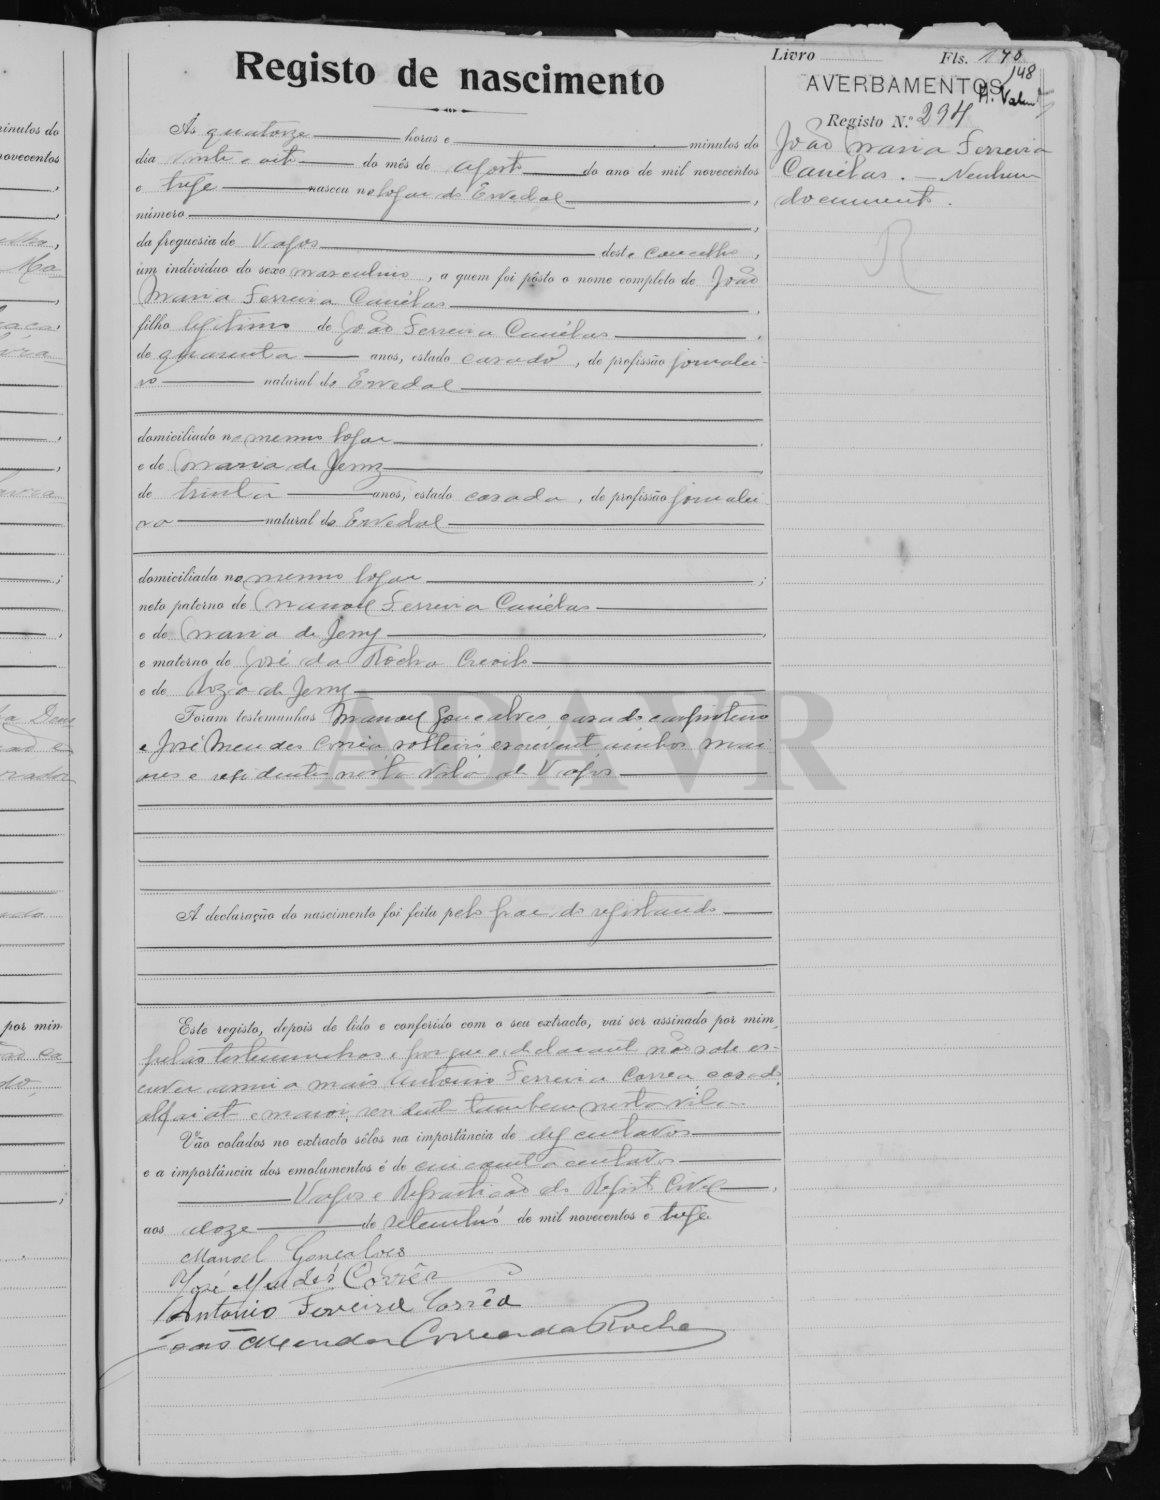 Registo de nascimento
Livro Fls. 148
AVERBAMENTOS
Registo N.º 294
João Maria Ferreira
Canélas. — Nenhum
documento.
Ás quatorze horas e minutos do
dia vinte e oito do mês de Agosto do ano de mil novecentos
e treze nasceu no logar do Ervedal ,
número ,
da freguesia de Vagos deste concelho ,
um indivíduo do sexo masculino , a quem foi pôsto o nome completo de João
Maria Ferreira Canélas ,
filho legitimo de João Ferreira Canélas ,
de quarenta anos, estado casado , de profissão jornalei-
ro natural do Ervedal
domiciliado no mesmo logar ,
e de Maria de Jesus ,
de trinta anos, estado casada , de profissão jornalei-
ra natural do Ervedal
domiciliada no mesmo logar ;
neto paterno de Manoel Ferreira Canélas
e de Maria de Jesus ,
e materno de José da Rocha
e de Roza de Jesus
Foram testemunhas Manoel Gonçalves, casado carpinteiro
e José Mendes Corrêa solteiro escrevente ambos mai-
ores e residentes nesta vila de Vagos
A declaração do nascimento foi feita pelo pae do registando
Este registo, depois de lido e conferido com o seu extracto, vai ser assinado por mim,
pelas testemunhas e por que o declarante não sabe es-
crever assina mais Antonio Ferreira Corrêa, casado,
alfaiate e maior, residente tambem nesta vila
Vão colados no extracto sêlos na importância de dez centavos
e a importância dos emolumentos é de cincoenta centavos
Vagos e Repartição do Registo Civil ,
aos doze de setembro de mil novecentos e treze
Manoel Gonçalves
José Mendes Corrêa
Antonio Ferreira Corrêa
João Mendes Correa da Rocha
ADAVR